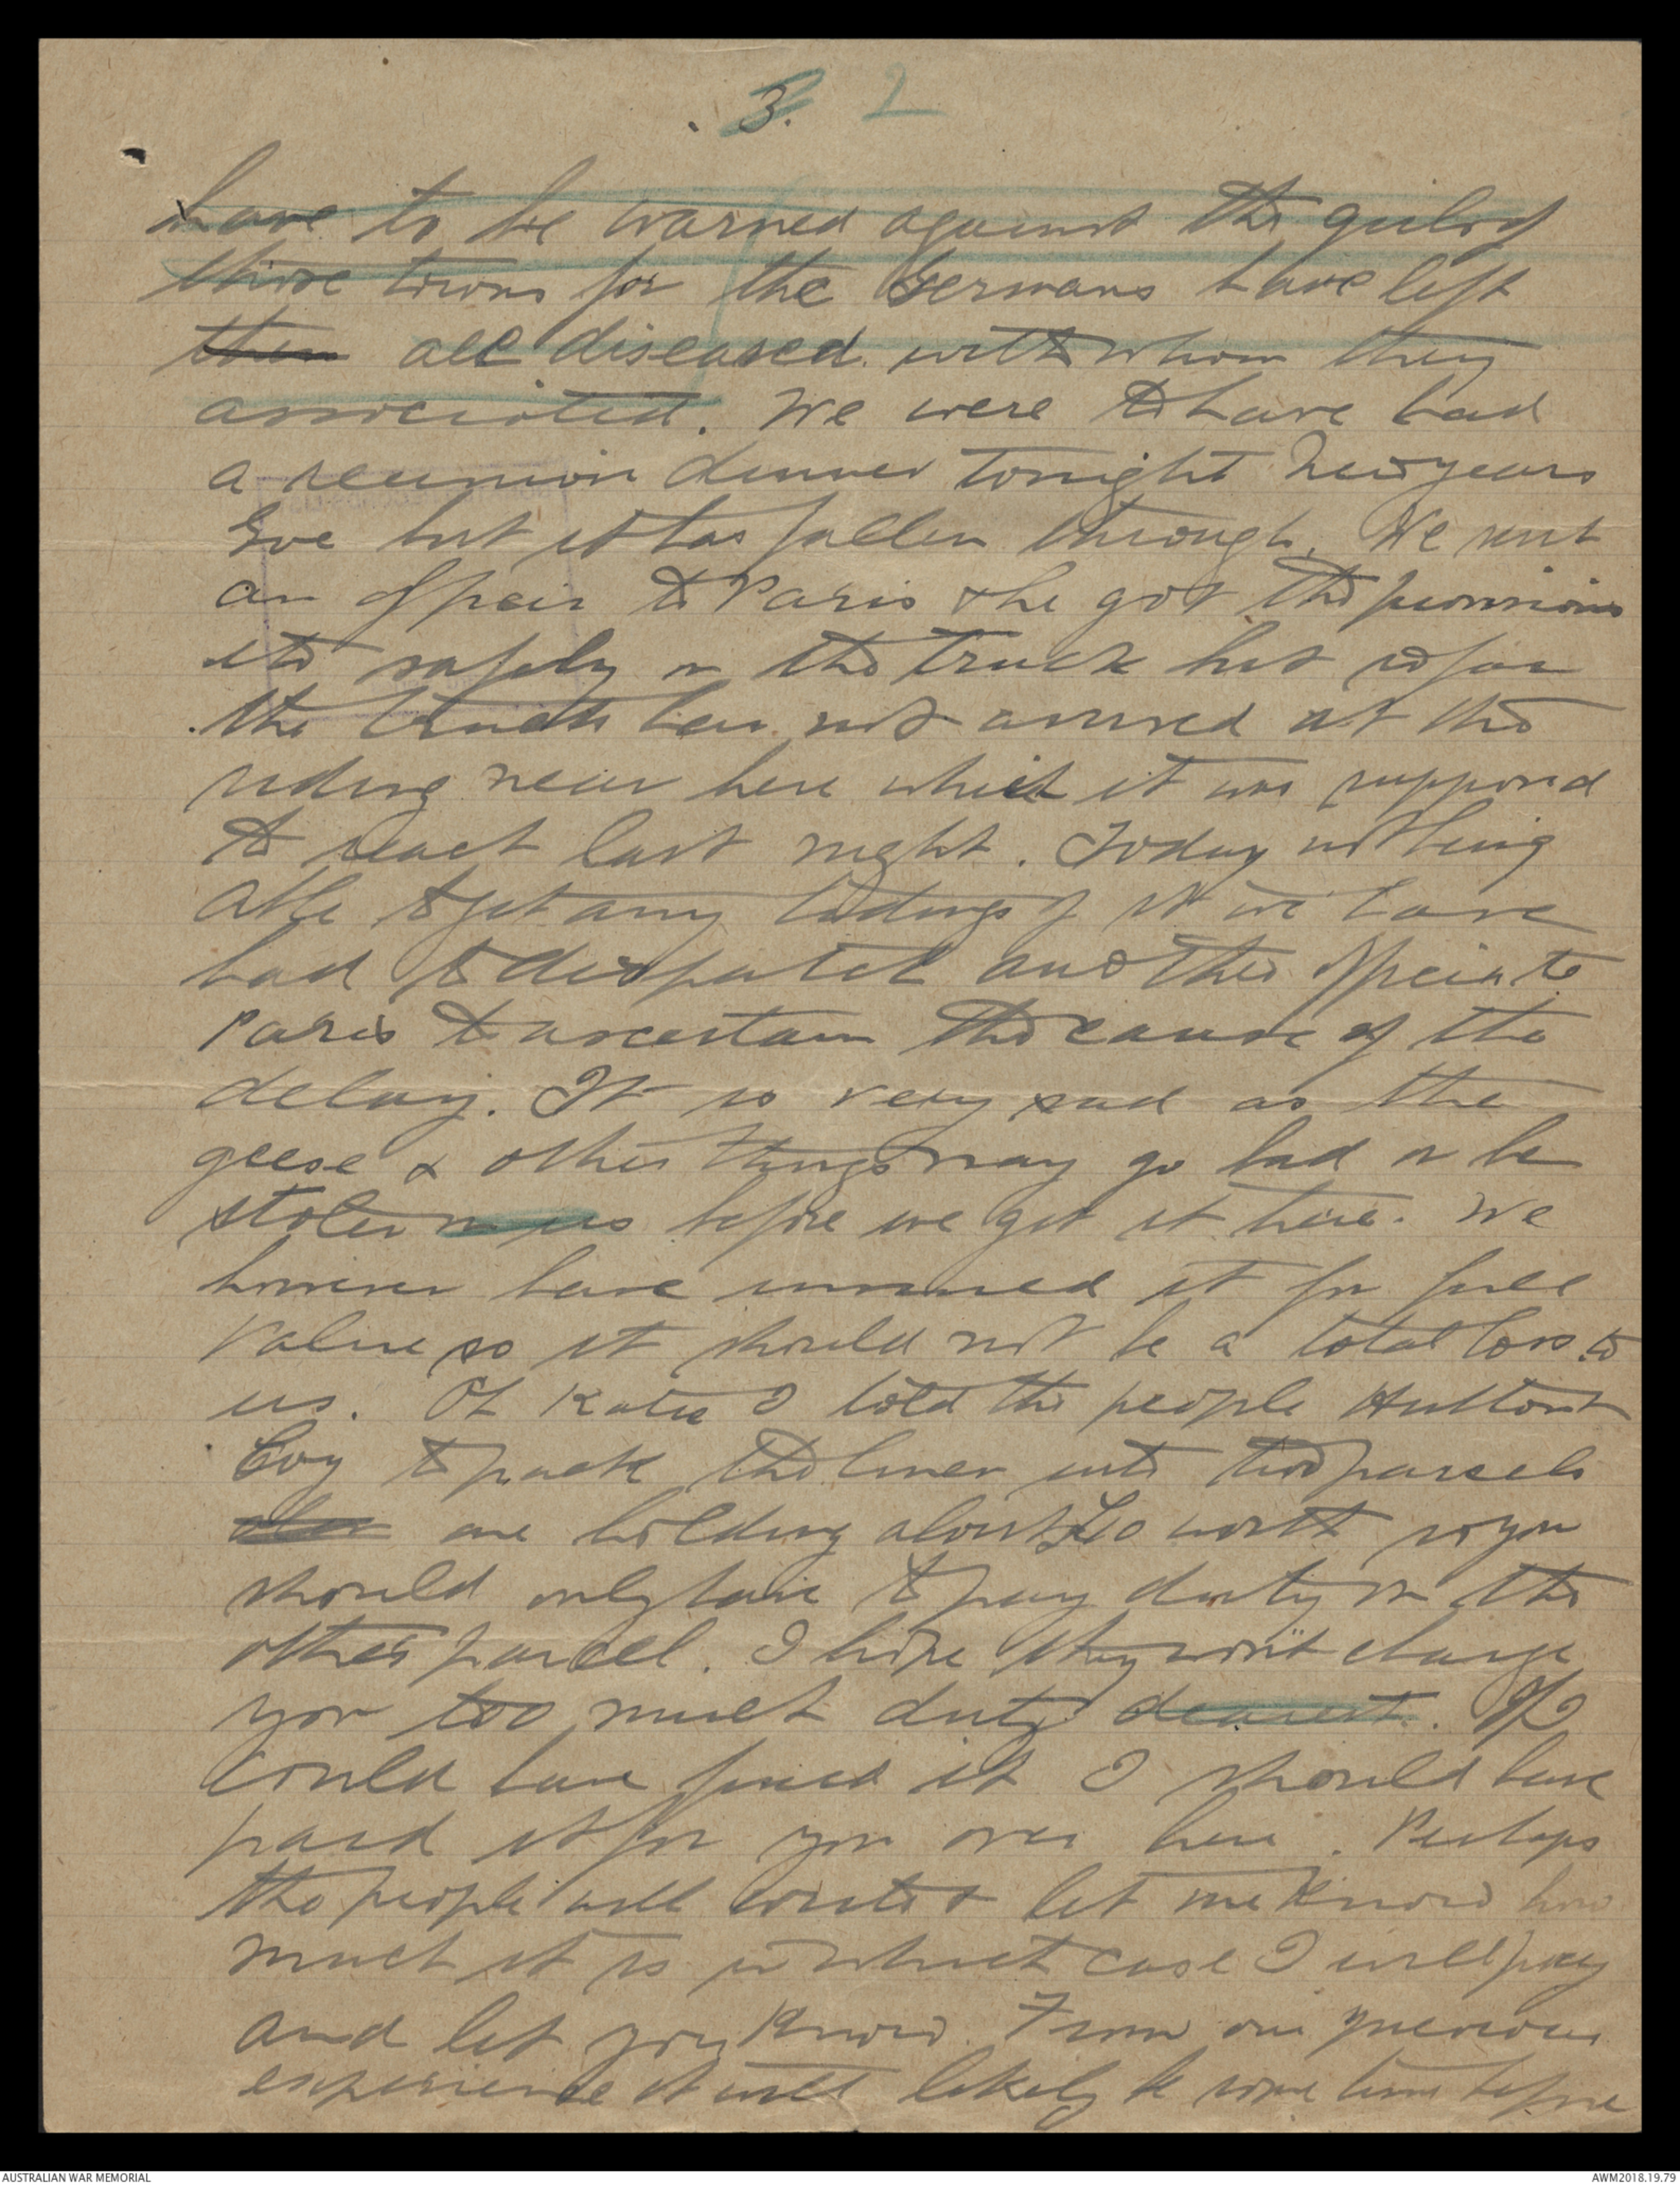 3. 2
have to be warned against the girls of
those towns for the Germans have left
them all diseased with whom they
associated. We were to have had
a reunion dinner tonight New years
Eve but it has fallen through. We sent
an officer to Paris & he got the provisions
etc safely on the truck but so far
the truck has not arrived at the
siding near here which it was supposed
to reach last night. Today not being
able to get any tidings of it we have
had to despatch another officer to
Paris to ascertain the cause of the
delay. It is very sad as the
geese & other things may go bad or be
stolen before we get it here. We
however have insured it for full
value so it should not be a total loss to
us. Oh Katie I told the people
Coy to pack the linen into two parcels
one holding about worth so you
should only have to pay duty on the
other parcel. I hope they won't charge
you too much duty dearest. If I
could have fixed it I should have
paid it for you over here. Perhaps
the people will write & let me know how
much it is in which case I will pay
and let you know. From our previous
experience it will likely be some time before
AUSTRALIAN WAR MEMORIAL
AWM2018.19.79